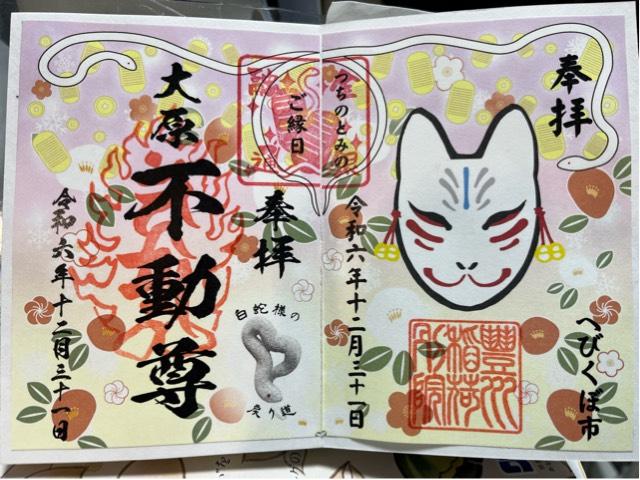 奉拝
へびくぼ市
豐川
稲荷
令和六年十二月三十一日
つちのとみの
ご縁日
奉拝
白蛇様の
大原
不動尊
令和六年十二月三十一日